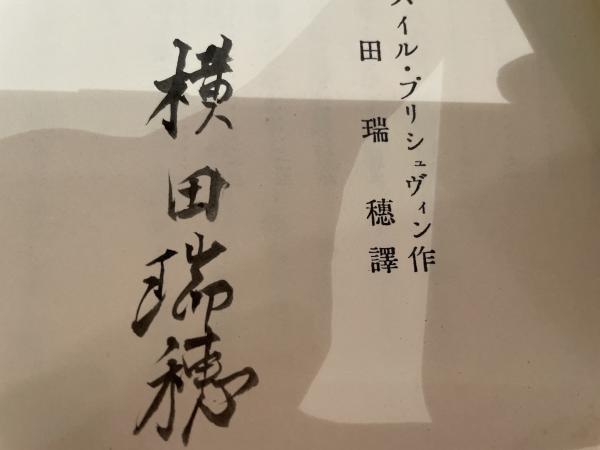 ハイル・プリシュヴィン作
田瑞穗譯
横田瑞穂